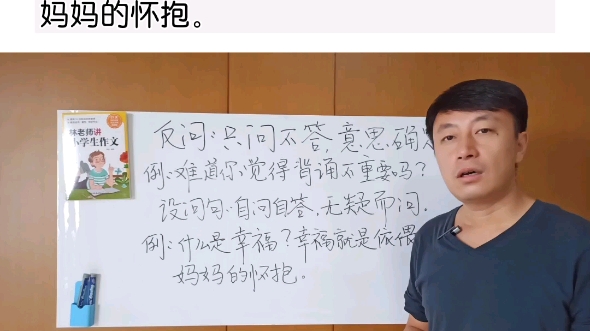 妈妈的怀抱。
林老师讲
小学生作文
反问:只问不答,意思确定
例:难道你觉得背诵不重要吗?
设问句:自问自答,无疑而问.
例:什么是幸福?幸福就是依偎
妈妈的怀抱。